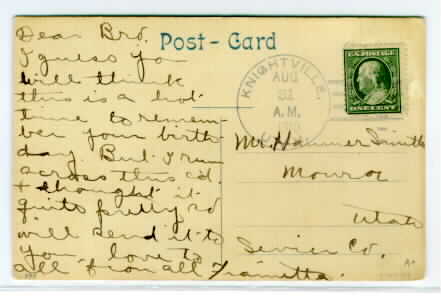 Dear Bro.
I guess you
will think
this is a hot
time to remem-
ber your birth
day. But I run
across this cd.
+ thought it
quite pretty so
will send it to
you, love to
all from all
Post-Card
KNIGHTVILLE,
AUG
31
A.M.
U.S. POSTAGE
ONE CENT
Mr. Hammer Smith
Monroe
Utah
Sevier Co.